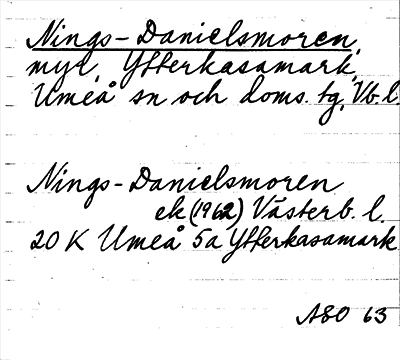 Nings-Danielsmoren,
myr, Ytterkasamark,
Umeå sn och doms. tg, Vb. l.
Nings-Danielsmoren
ek (1962) Västerb. l.
20 K Umeå 5a Ytterkasamark
63